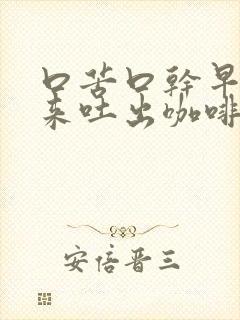 口苦口幹早
来吐出咖啡
安倍晋三